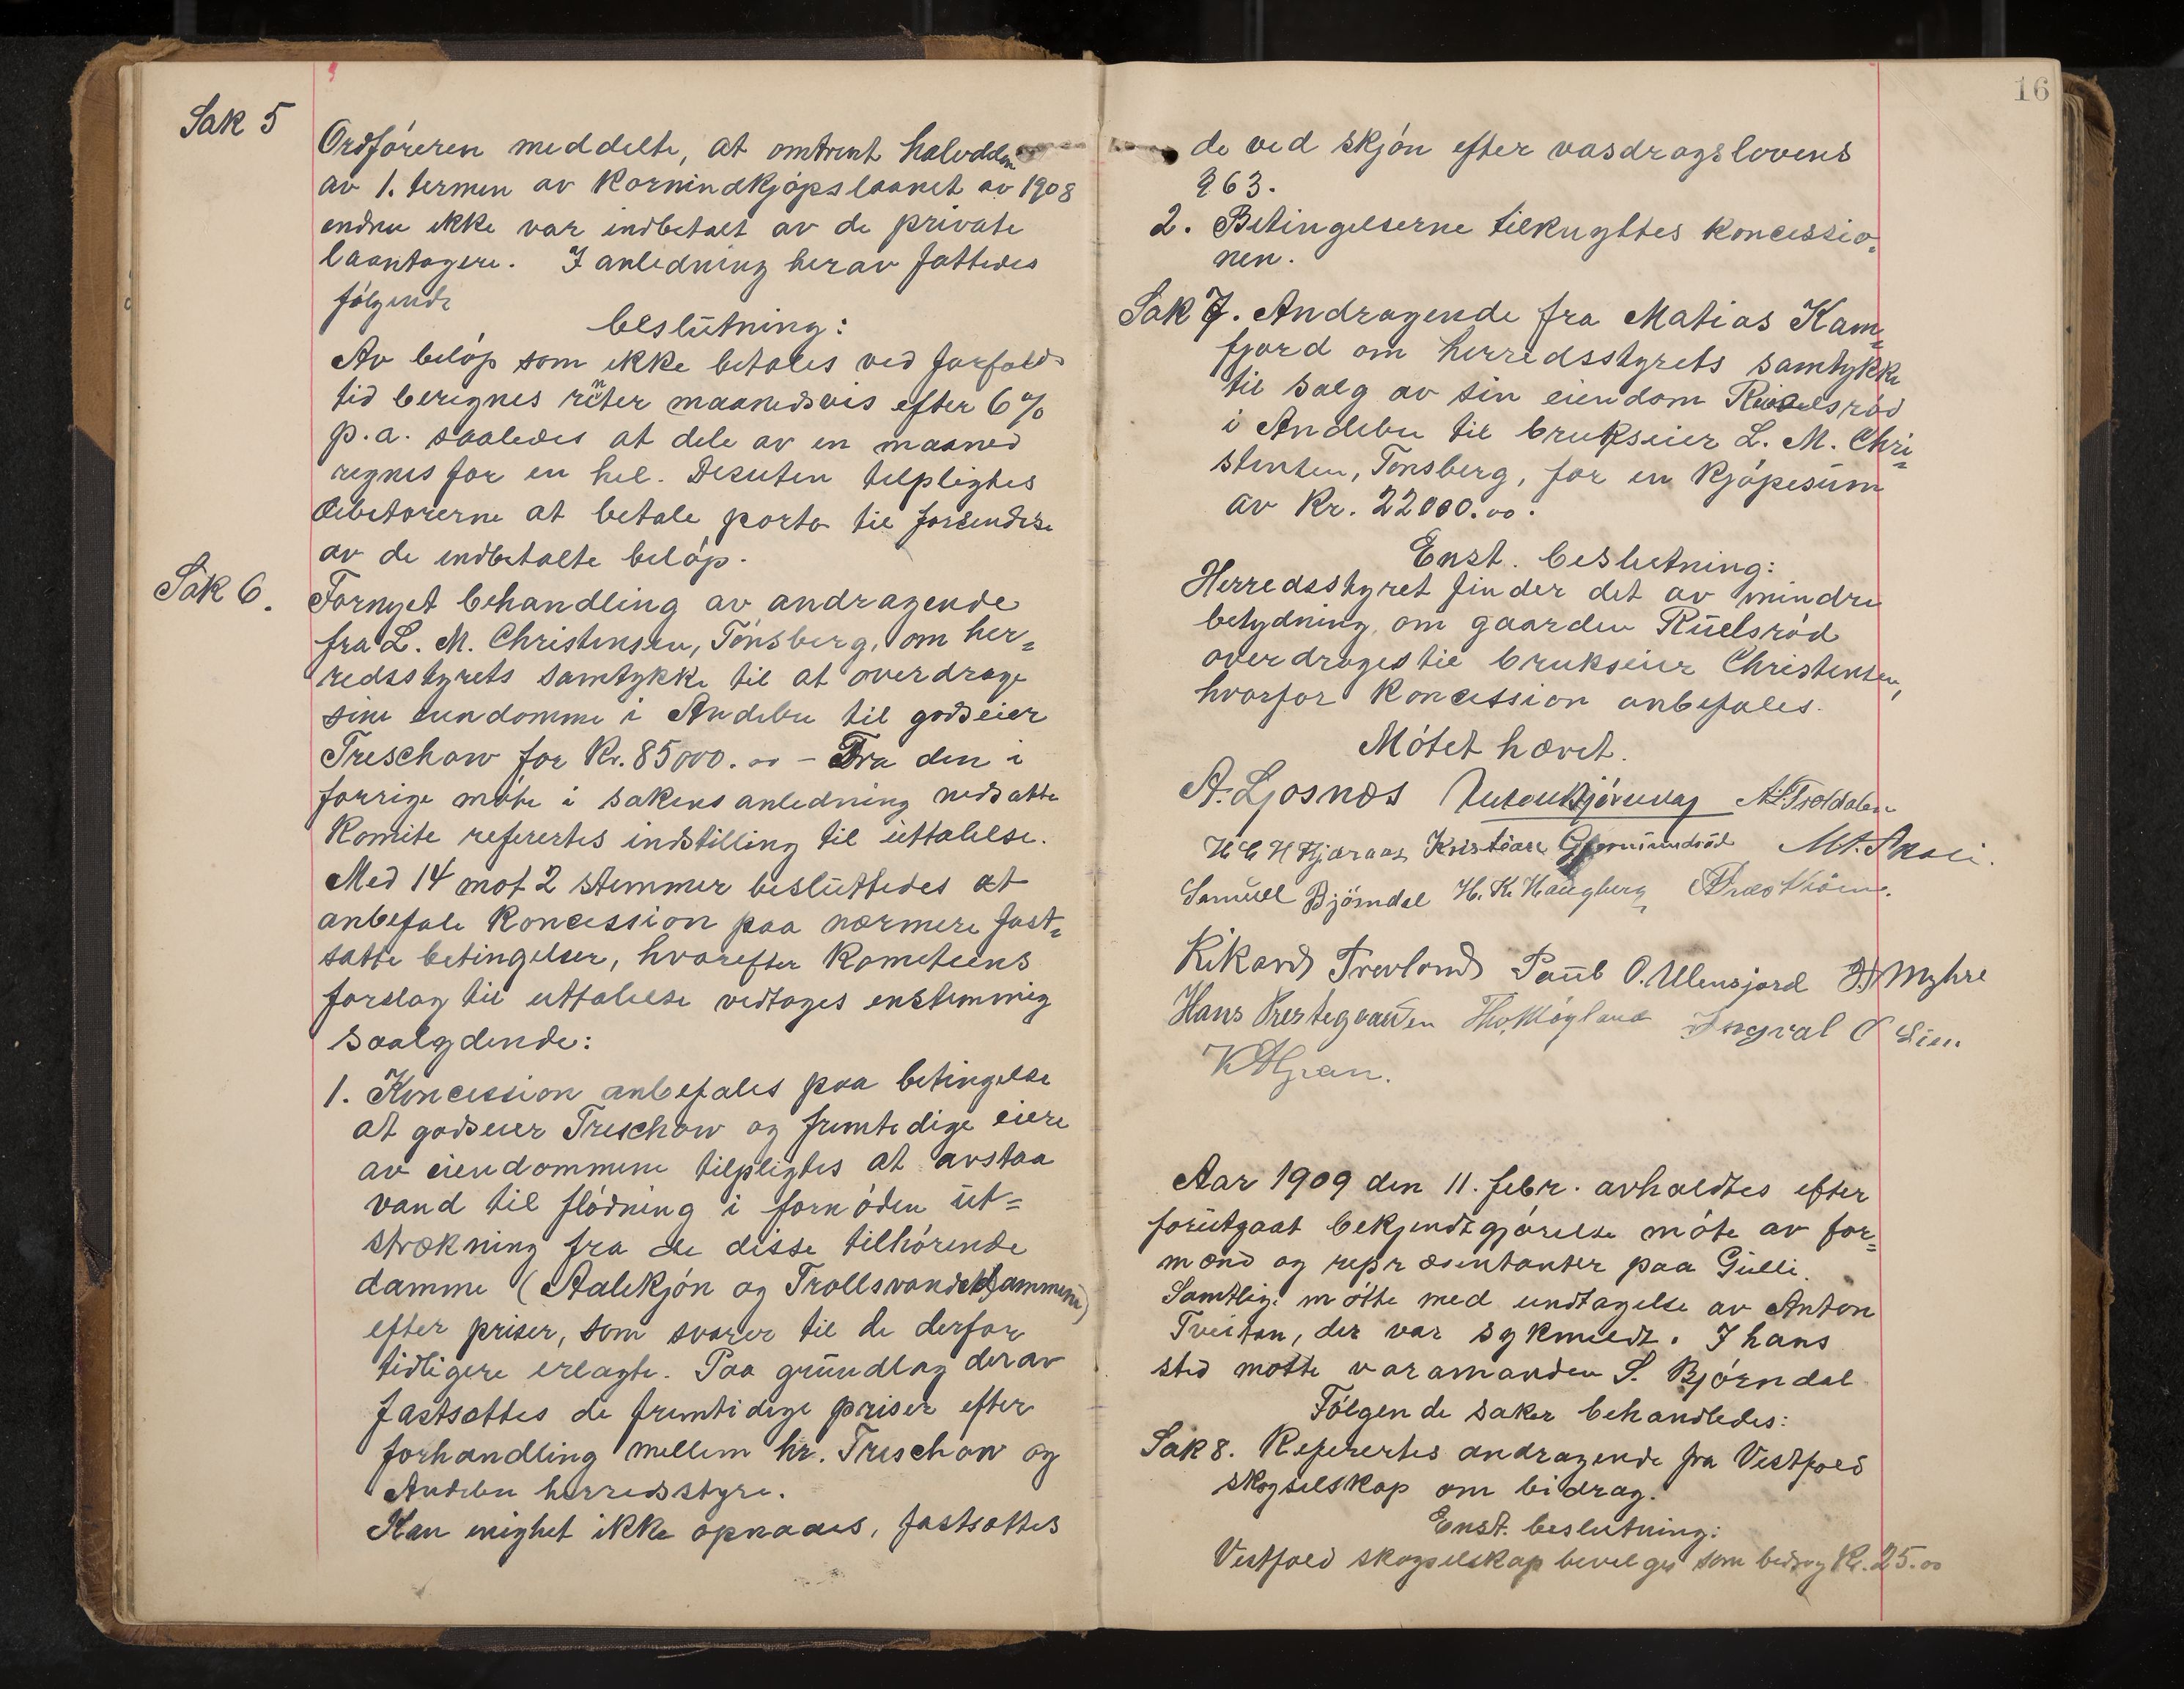 Sak 5
Ordføreren meddelte, at omtrent halvdelen
av 1. termen av Kornindkjøpslaanet av 1908
endnu ikke var indbetalt av de private
laantagere. I anledning herav fattedes
følgende
beslutning:
Av beløp som ikke betales ved forfalds
tid beregnes renter maanedsvis efter 6%
p.a. saaledes at dele av en maaned
regnes for en hel. Desuten tilpligtes
debitorerne at betale porto til forsendelse
av de indbetalte beløp.
Sak 6.
Fornyet behandling av andragende
fra L. M. Christensen, Tønsberg, om her=
redsstyrets samtykke til at overdrage
sine eiendomme i Andebu til godseier
Treschow for Kr. 85000.00 - Fra den i
forrige møte i sakens anledning nedsatte
Komite refertes indstilling til uttalelse.
Med 14 mot 2 stemmer besluttedes at
anbefale Koncession paa nærmere fast=
satte betingelser, hvorefter Komiteens
forslag til uttalelse vedtoges enstemmig
saalydende:
1. Koncession anbefales paa betingelse
at godseier Treschow og fremtidige eiere
av eiendommene tilpligtes at avstaa
vand til flødning i fornøden ut=
strækning fra de disse tilhørende
damme (Aalekjøn og Trollsvanddammene)
efter priser, som svarer til de derfor
tidligere erlagte. Paa grundlag derav
fastsættes de fremtidige priser efter
forhandling mellem hr. Treschow og
Andebu herredsstyre.
Kan enighet ikke opnaaes, fastsættes
16
de ved skjøn efter vasdragslovens
§ 63.
2. Betingelserne tilknyttes koncessio=
nen.
Sak 7. Andragende fra Matias Kam=
fjord om herredsstyrets samtykke
til salg av sin eiendom Ruelsrød
i Andebu til brukseier L. M. Chri=
stensen, Tønsberg, for en kjøpesum
av Kr. 22000.00.
Enst. beslutning:
Herredsstyret finder det av mindre
betydning om gaarden Ruelsrød
overdrages til brukseier Christensen,
hvorfor Koncession anbefales.
Møtet hævet.
A. Ljosnæs A. L. Trældalen
H C H Hjaraas Kristian
Samuel Bjørndal H. K. Haugberg
Rikard Trevland Paul O. Ulensjord Myhre
Hans Prestegaarden Ths. Møyland Ingval O Lin
Aar 1909 den 11. febr. avholdtes efter
forutgaat bekjendtgjørelse møte av for=
mænd og repræsentanter paa Gulli.
Samtlige møtte med undtagelse av Anton
Tveitan, der var sykmeldt. I hans
sted møtte varamanden S. Bjørndal
Følgende saker behandledes:
Sak 8. Refertes andragende fra Vestfold
skogselskap om bidrag.
Enst. beslutning:
Vestfold skogselskap bevilges som bidrag Kr. 25.00